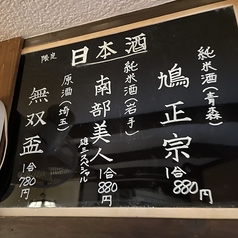 限定 日本酒
純米酒(青森)
鳩正宗
1合880円
純米酒(岩手)
南部美人
雄三スペシャル
1合880円
原酒(埼玉)
無双盃
1合780円